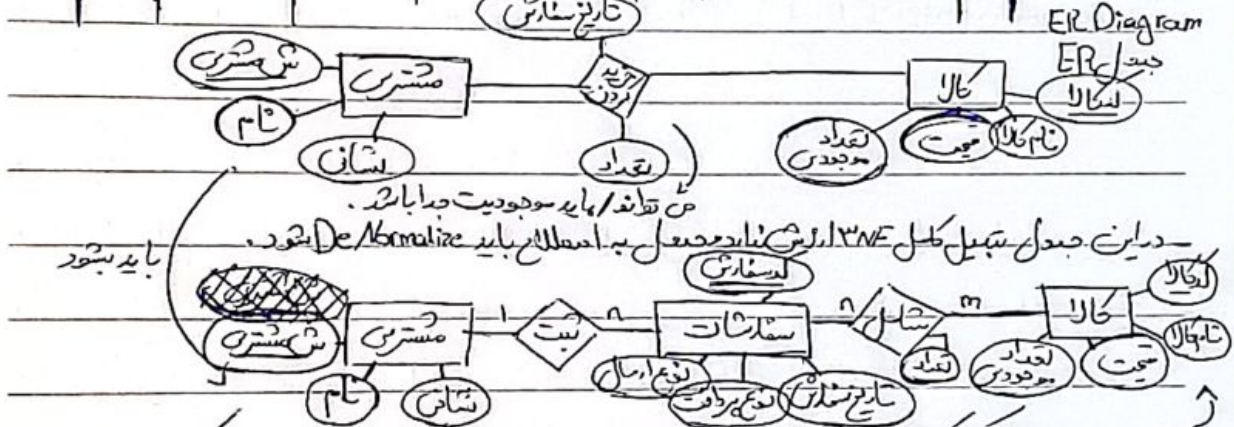 تاریخ سفارش
ER Diagram
جدول ER
ش مشتری
مشتری
خرید کردن
کالا
کد کالا
نام
نشانی
تعداد
تعداد موجودی
قیمت
نام کالا
می تواند / باید موجودیت جدا باشد .
در این جدول تبدیل کامل 3NF ارزش ندارد و جدول به اصطلاح باید DeNormalize شود .
باید بشود
کد سفارش
کد کالا
ش مشتری
مشتری
1
ثبت
n
سفارشات
n
شامل
m
کالا
نام کالا
نام
نشانی
نوع ارسال
نوع پرداخت
تاریخ سفارش
تعداد
تعداد موجودی
قیمت